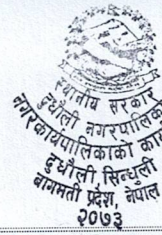 स्थानीय सरकार
दुधौली नगरपालिका
नगरकार्यपालिकाको
दुधौली, सिन्धुली
बागमती प्रदेश, नेपाल
२०७३